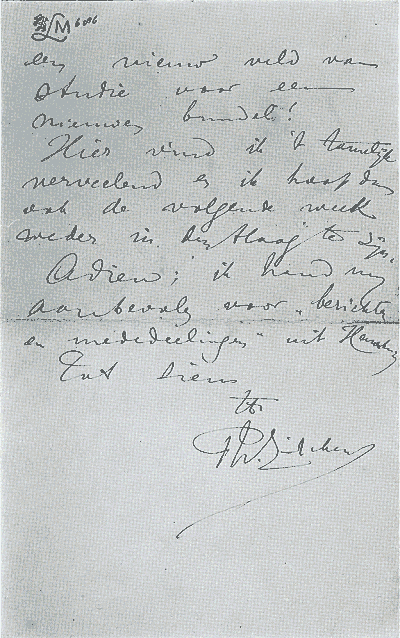 LM 6086
een nieuw veld van
studie voor een
nieuwen bundel!
Hier vind ik 't tamelijk
vervelend en ik hoop dan
ook de volgende week
weder in den Haag te zijn.
Adieu; ik houd mij
aanbevolen voor „berichten
en mededeelingen" uit
Tot ziens
tt
Ph. Zilcken